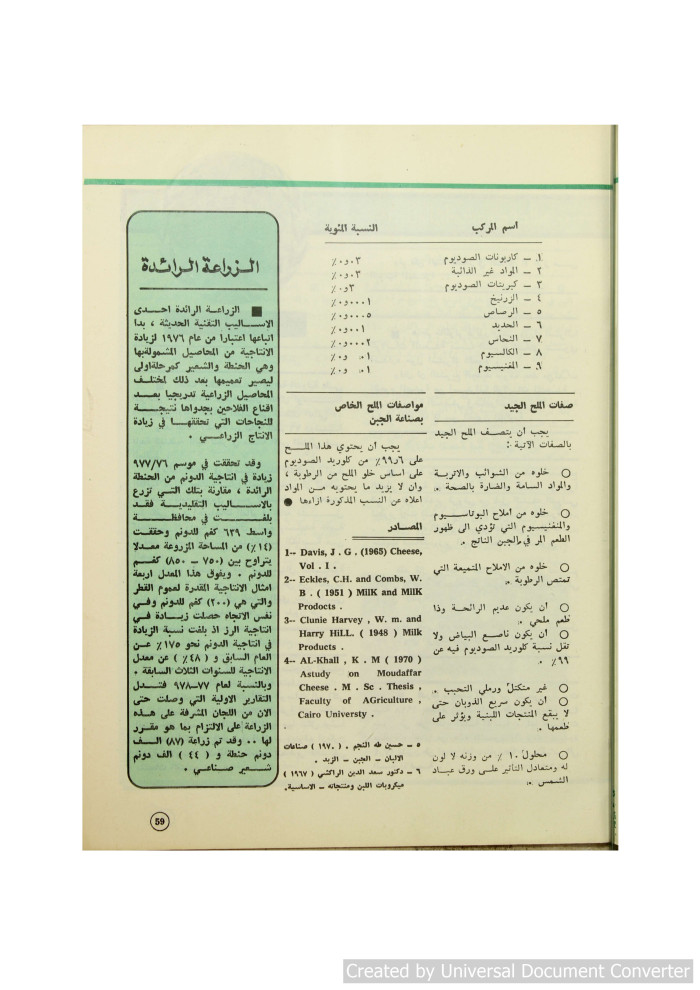 اسم المركب    النسبة المئوية
١. – كاربونات الصوديوم    ٠٫٠٣٪
٢ – المواد غير الذائبة    ٠٫٠٣٪
٣ – كبريتات الصوديوم    ٠٫٣٪
٤ – الزرنيخ    ٠٫٠٠٠١٪
٥ – الرصاص    ٠٫٠٠٠٥٪
٦ – الحديد    ٠٫٠٠١٪
٧ – النحاس    ٠٫٠٠٠٢٪
٨ – الكالسيوم
٩. – المغنيسيوم
صفات الملح الجيد
يجب أن يتصف الملح الجيد
بالصفات الآتية :
○ خلوه من الشوائب والاتربة
والمواد السامة والضارة بالصحة .
○ خلوه من أملاح البوتاسيوم
والمغنيسيوم التي تؤدي الى ظهور
الطعم المر في الجبن الناتج .
○ خلوه من الاملاح المتميعة التي
تمتص الرطوبة .
○ أن يكون عديم الرائحة وذا
طعم ملحي .
○ أن يكون ناصع البياض ولا
تقل نسبة كلوريد الصوديوم فيه عن
٩٩٪ .
○ غير متكتل ورملي التحبب .
○ أن يكون سريع الذوبان حتى
لا يبقع المنتجات اللبنية ويؤثر على
طعمها .
○ محلول ١٠٪ من وزنه لا لون
له ومتعادل التأثير على ورق عباد
الشمس .
مواصفات الملح الخاص
بصناعة الجبن
يجب أن يحتوي هذا الملح
على ٩٩٫٦٪ من كلوريد الصوديوم
على اساس خلو الملح من الرطوبة ،
وان لا يزيد ما يحتويه من المواد
اعلاه عن النسب المذكورة ازاءها ●
المصادر
1-- Davis, J . G . (1965) Cheese,
Vol . I .
2-- Eckles, C.H. and Combs, W.
B . ( 1951 ) MilK and MilK
Products .
3-- Clunie Harvey , W. m. and
Harry HiLL. ( 1948 ) Milk
Products .
4-- AL-Khall , K . M ( 1970 )
Astudy on Moudaffar
Cheese . M . Sc . Thesis ,
Faculty of AGriculture ,
Cairo Universty .
٥ – حسين طه النجم . ( ١٩٧٠ ) صناعات
الالبان – الجبن – الزبد .
٦ – دكتور سعد الدين الراكشي ( ١٩٦٧ )
ميكروبات اللبن ومنتجاته – الاساسية.
الزراعة الرائدة
■ الزراعة الرائدة احدى
الاساليب التقنية الحديثة ، بدا
اتباعها اعتبارا من عام ١٩٧٦ لزيادة
الانتاجية من المحاصيل المشمولة بها
وهي الحنطة والشعير كمرحلة اولى
ليصير تعميمها بعد ذلك لمختلف
المحاصيل الزراعية تدريجيا بعد
اقناع الفلاحين بجدواها نتيجة
للنجاحات التي تحققها في زيادة
الانتاج الزراعي .
وقد تحققت في موسم ٩٧٧/٧٦
زيادة في انتاجية الدونم من الحنطة
الرائدة ، مقارنة بتلك التي تزرع
بالاساليب التقليدية فقد
بلغت في محافظة
واسط ٦٣٩ كغم للدونم وحققت
(١٤٪) من المساحة المزروعة معدلا
يتراوح بين (٧٥٠ – ٨٥٠) كغم
للدونم . ويفوق هذا المعدل اربعة
امثال الانتاجية المقدرة لعموم القطر
والتي هي (٢٠٠) كغم للدونم وفي
نفس الاتجاه حصلت زيادة في
انتاجية الرز اذ بلغت نسبة الزيادة
في انتاجية الدونم نحو ١٧٥٪ عن
العام السابق و ( ٤٨٪ ) عن معدل
الانتاجية للسنوات الثلاث السابقة .
وبالنسبة لعام ٧٧–٩٧٨ فتدل
التقارير الاولية التي وصلت حتى
الان من اللجان المشرفة على هذه
الزراعة على الالتزام بما هو مقرر
لها .. وقد تم زراعة (٨٧) الف
دونم حنطة و ( ٤٤ ) الف دونم
شعير صناعي .
59
Created by Universal Document Converter